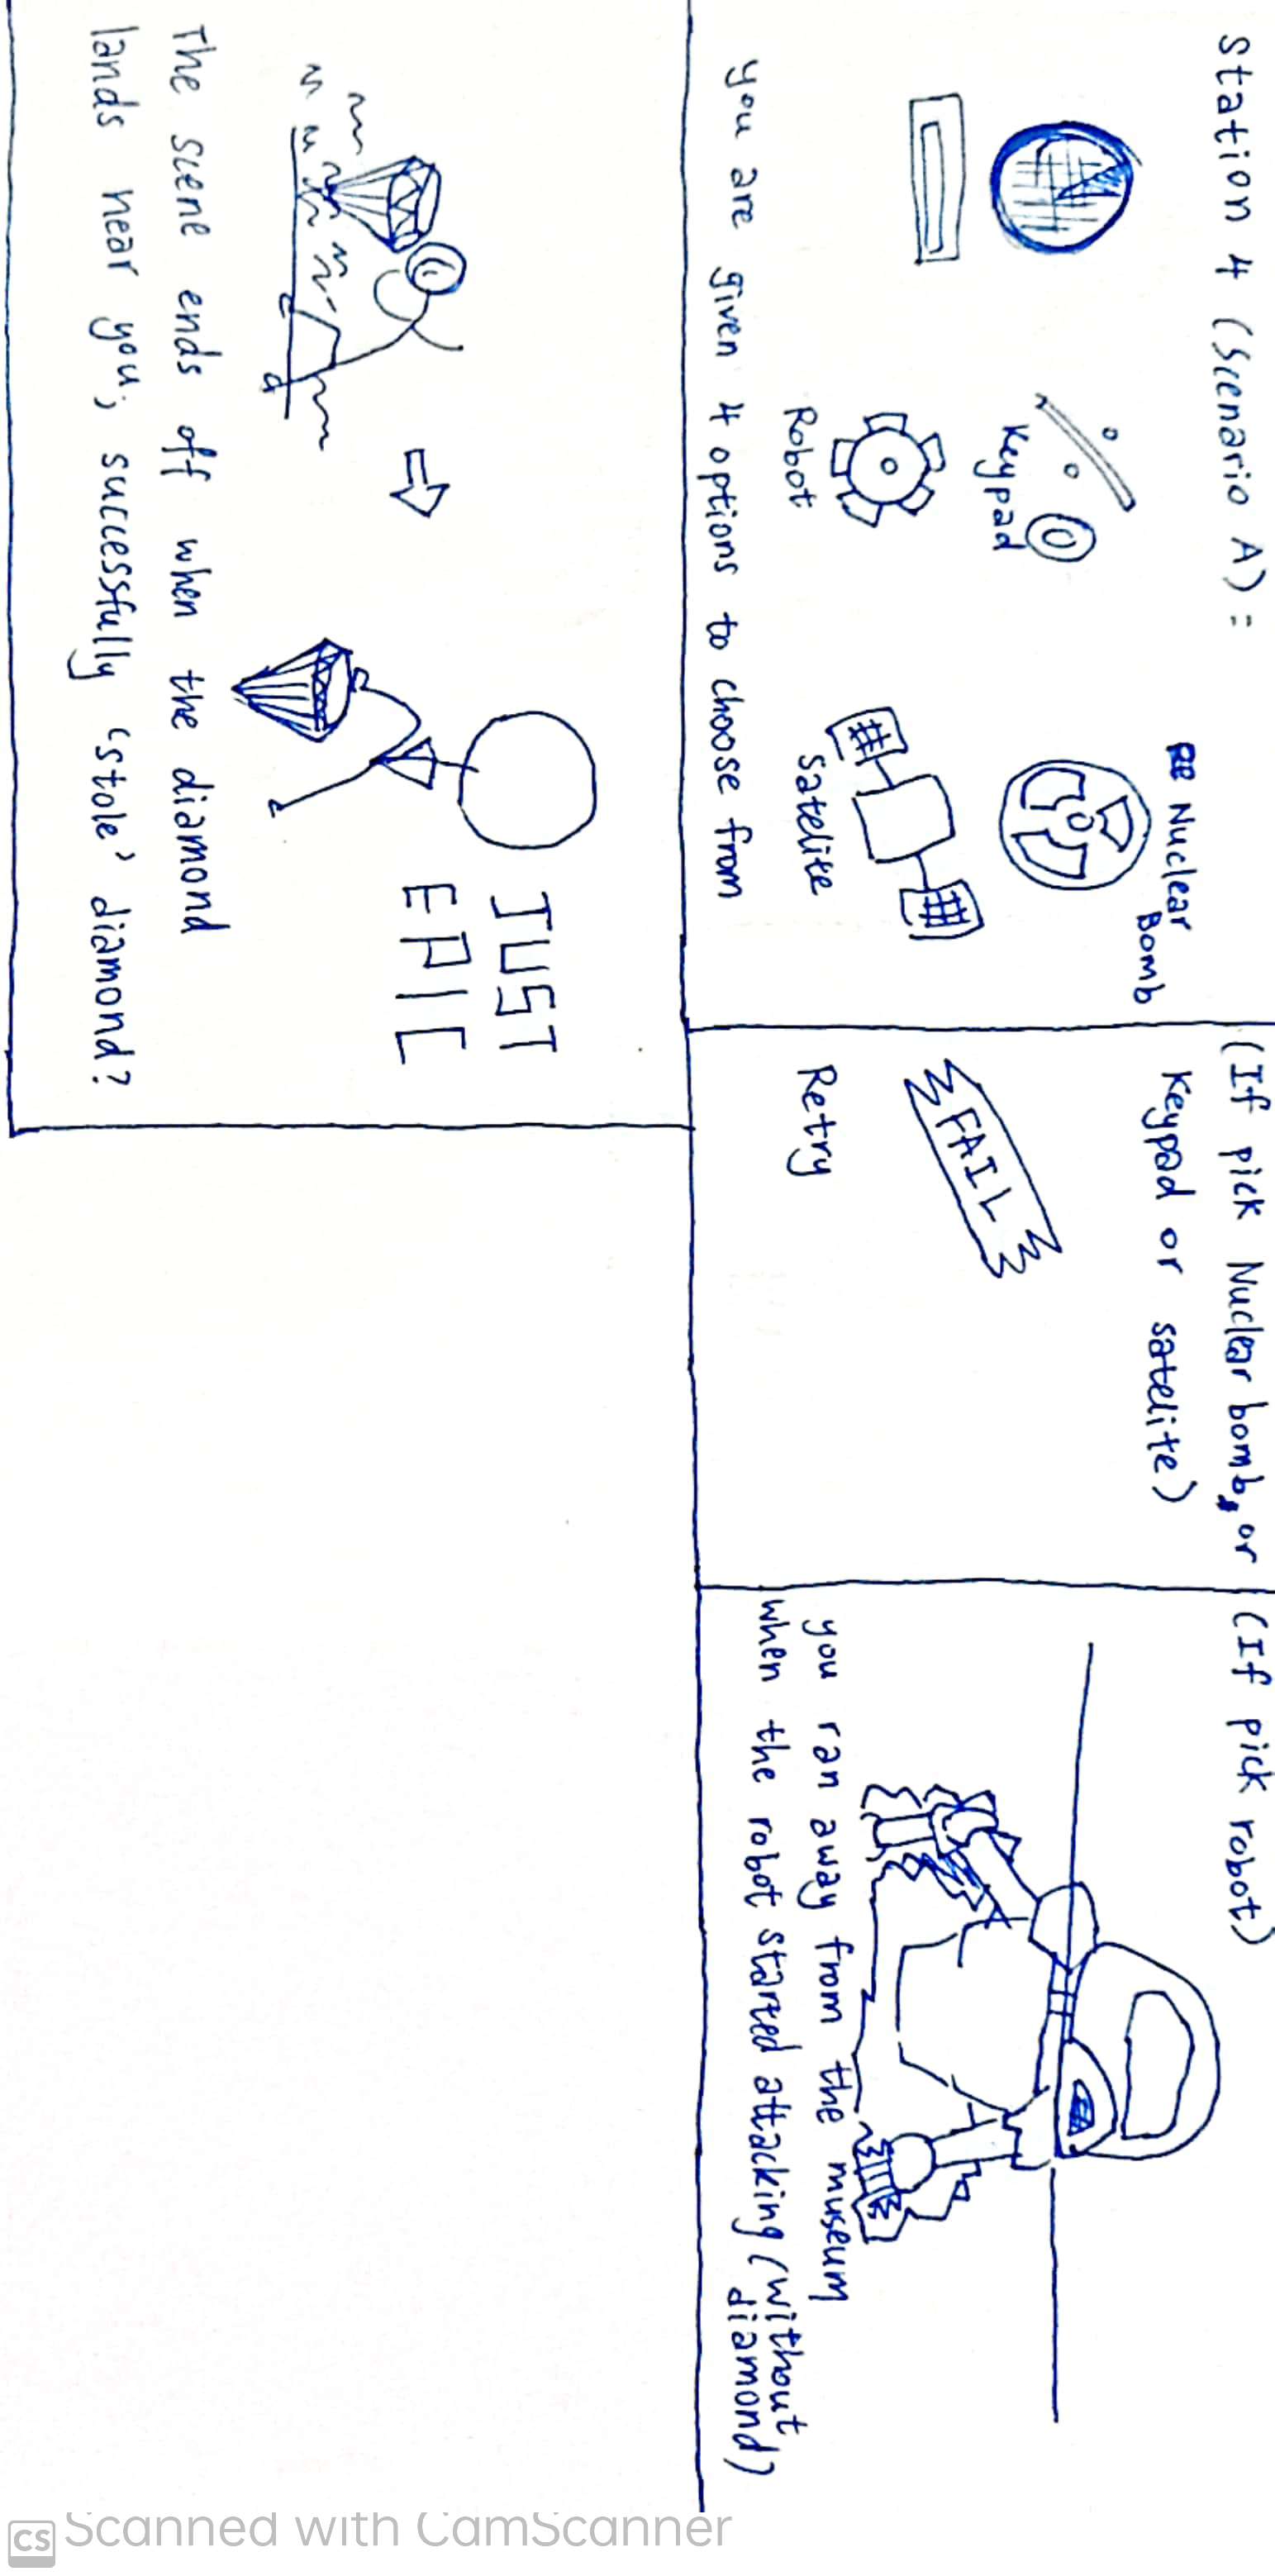 Station 4 (Scenario A) =
Nuclear
Bomb
Keypad
Robot
satelite
you are given 4 options to choose from
(If pick Nuclear bomb, or
Keypad or satelite)
FAIL
Retry
(If pick robot)
you ran away from the museum
when the robot started attacking (without
diamond)
JUST
EPIC
The scene ends off when the diamond
lands near you; successfully 'stole' diamond?
CS Scanned with CamScanner